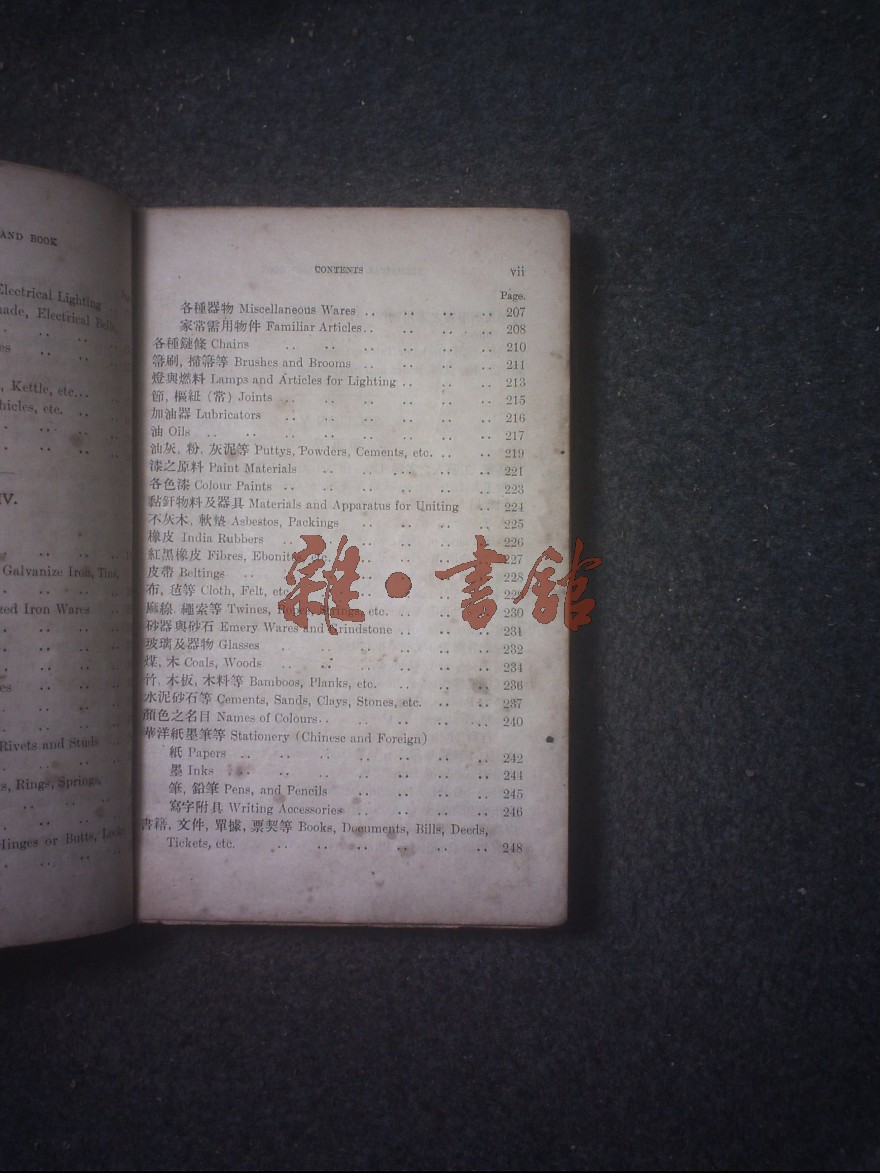 AND BOOK
Electrical Lighting
Electrical
Kettle, etc.
etc.
IV.
Galvanize Iron, Tins,
Iron Wares
Rivets and Studs
Rings, Springs,
Hinges or Butts,
CONTENTS vii
Page.
各種器物 Miscellaneous Wares .. .. .. .. 207
家常需用物件 Familiar Articles.. .. .. .. 208
各種鏈條 Chains .. .. .. .. .. .. 210
箒刷, 掃箒等 Brushes and Brooms .. .. .. .. 211
燈與燃料 Lamps and Articles for Lighting .. .. .. 213
節, 樞紐 (常) Joints .. .. .. .. .. .. 215
加油器 Lubricators .. .. .. .. .. .. 216
油 Oils .. .. .. .. .. .. .. .. 217
油灰, 粉, 灰泥等 Puttys, Powders, Cements, etc. .. .. 219
漆之原料 Paint Materials .. .. .. .. .. 221
各色漆 Colour Paints .. .. .. .. .. .. 223
黏釬物料及器具 Materials and Apparatus for Uniting .. 224
不灰木, 軟墊 Asbestos, Packings .. .. .. .. 225
橡皮 India Rubbers .. .. .. .. .. .. 226
紅黑橡皮 Fibres, Ebonites, etc. .. .. .. .. 227
皮帶 Beltings .. .. .. .. .. .. .. 228
布, 毡等 Cloth, Felt, etc. .. .. .. .. .. 229
麻線, 繩索等 Twines, Ropes, Strings, etc. .. .. .. 230
砂器與砂石 Emery Wares and Grindstone .. .. .. 231
玻璃及器物 Glasses .. .. .. .. .. .. 232
煤, 木 Coals, Woods .. .. .. .. .. 234
竹, 木板, 木料等 Bamboos, Planks, etc. .. .. .. 236
水泥砂石等 Cements, Sands, Clays, Stones, etc. .. .. 237
顏色之名目 Names of Colours.. .. .. .. .. 240
華洋紙墨筆等 Stationery (Chinese and Foreign)
紙 Papers .. .. .. .. .. .. .. 242
墨 Inks .. .. .. .. .. .. .. 244
筆, 鉛筆 Pens, and Pencils .. .. .. .. 245
寫字附具 Writing Accessories .. .. .. .. 246
書籍, 文件, 單據, 票契等 Books, Documents, Bills, Deeds,
Tickets, etc. .. .. .. .. .. .. 248
雜·書館